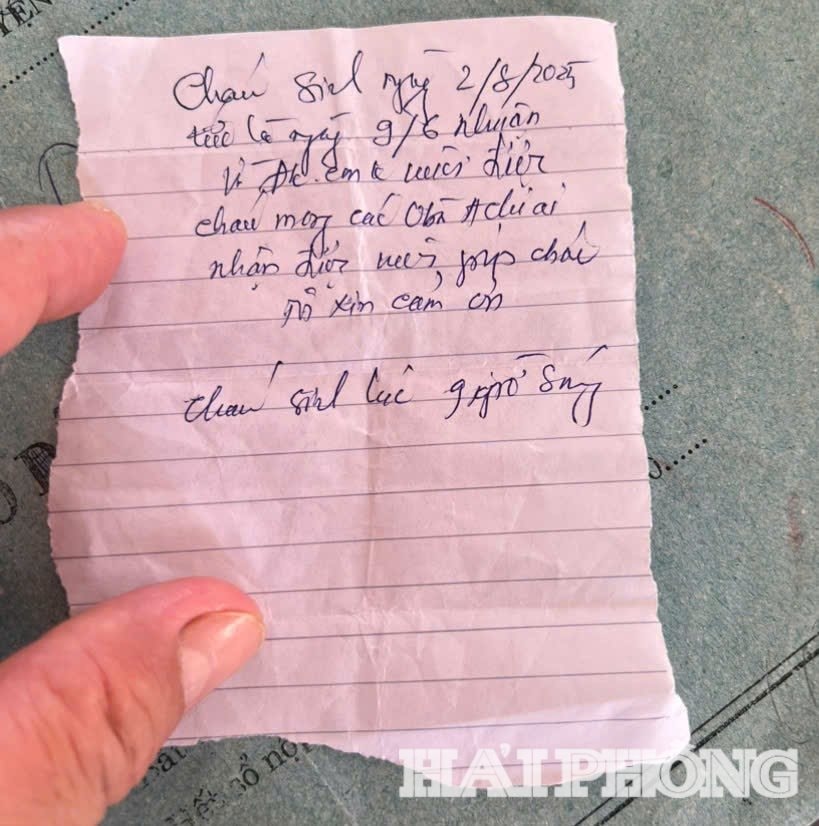 Cháu sinh ngày 2/8/2025
tức là ngày 9/6 nhuận
Vì đk em k nuôi được
cháu mong các ôbà A chị ai
nhận được nuôi giúp cháu
nó xin cảm ơn
cháu sinh lúc 9 sáng
HẢI PHÒNG